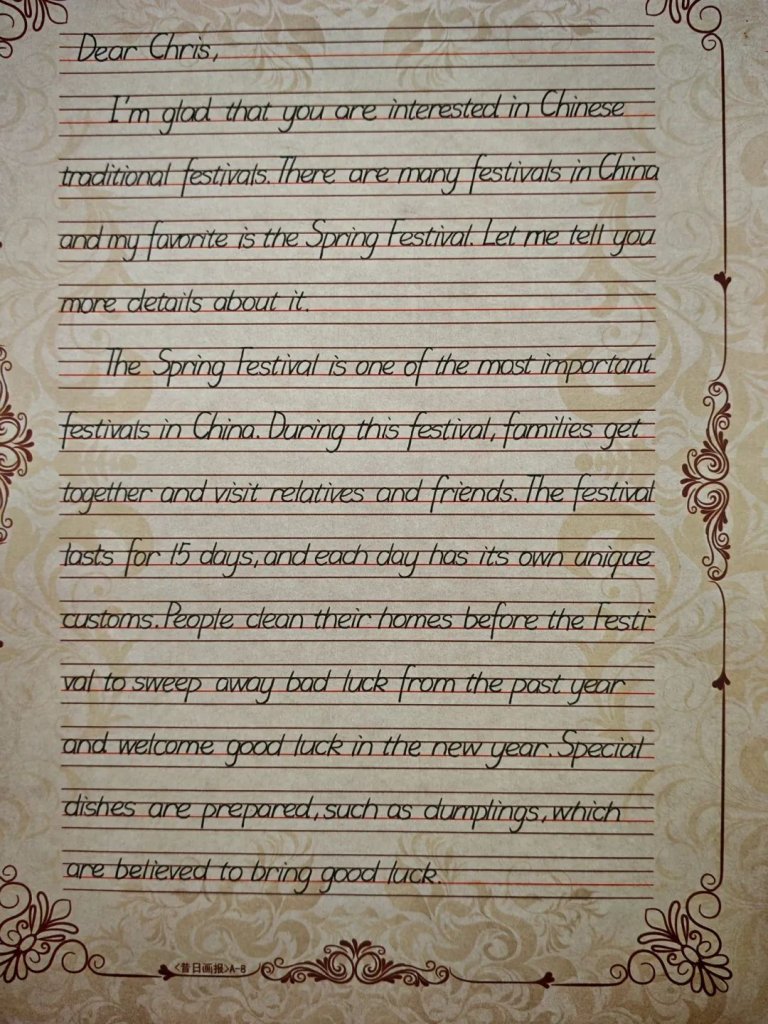 Dear Chris,
I'm glad that you are interested in Chinese
traditional festivals. There are many festivals in China
and my favorite is the Spring Festival. Let me tell you
more details about it.
The Spring Festival is one of the most important
festivals in China. During this festival, families get
together and visit relatives and friends. The festival
lasts for 15 days, and each day has its own unique
customs. People clean their homes before the Festi-
val to sweep away bad luck from the past year
and welcome good luck in the new year. Special
dishes are prepared, such as dumplings, which
are believed to bring good luck.
<昔日画报>A-8